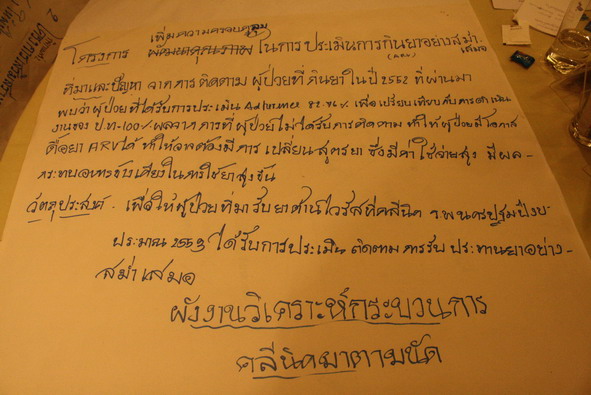 เพิ่มความครอบคลุม
โครงการ พัฒนาคุณภาพ ในการประเมินการกินยาอย่างสม่ำ-
(ARV) เสมอ
ที่มาและปัญหา จากการติดตาม ผู้ป่วยที่กินยาในปี 2552 ที่ผ่านมา
พบว่าผู้ป่วยที่ได้รับการประเมิน 82.86% เพื่อเปรียบเทียบกับการดำเนิน
งานของ ป.ท-100% ผลจากการที่ผู้ป่วยไม่ได้รับการติดตาม ทำให้ผู้ป่วยมีโอกาส
ดื้อยา ARV ได้ ทำให้ต้องมีการ เปลี่ยนสูตรยา ซึ่งมีค่าใช้จ่ายสูง มีผล-
กระทบอาการข้างเคียงในการใช้ยาสูงขึ้น
วัตถุประสงค์ . เพื่อให้ผู้ป่วยที่มารับยาต้านไวรัสที่คลีนิค ร.พ.นครปฐมปีงบ-
ประมาณ 2553 ได้รับการประเมิน ติดตาม การรับประทานยาอย่าง-
สม่ำเสมอ
ผังงานวิเคราะห์กระบวนการ
คลีนิคมาตามนัด